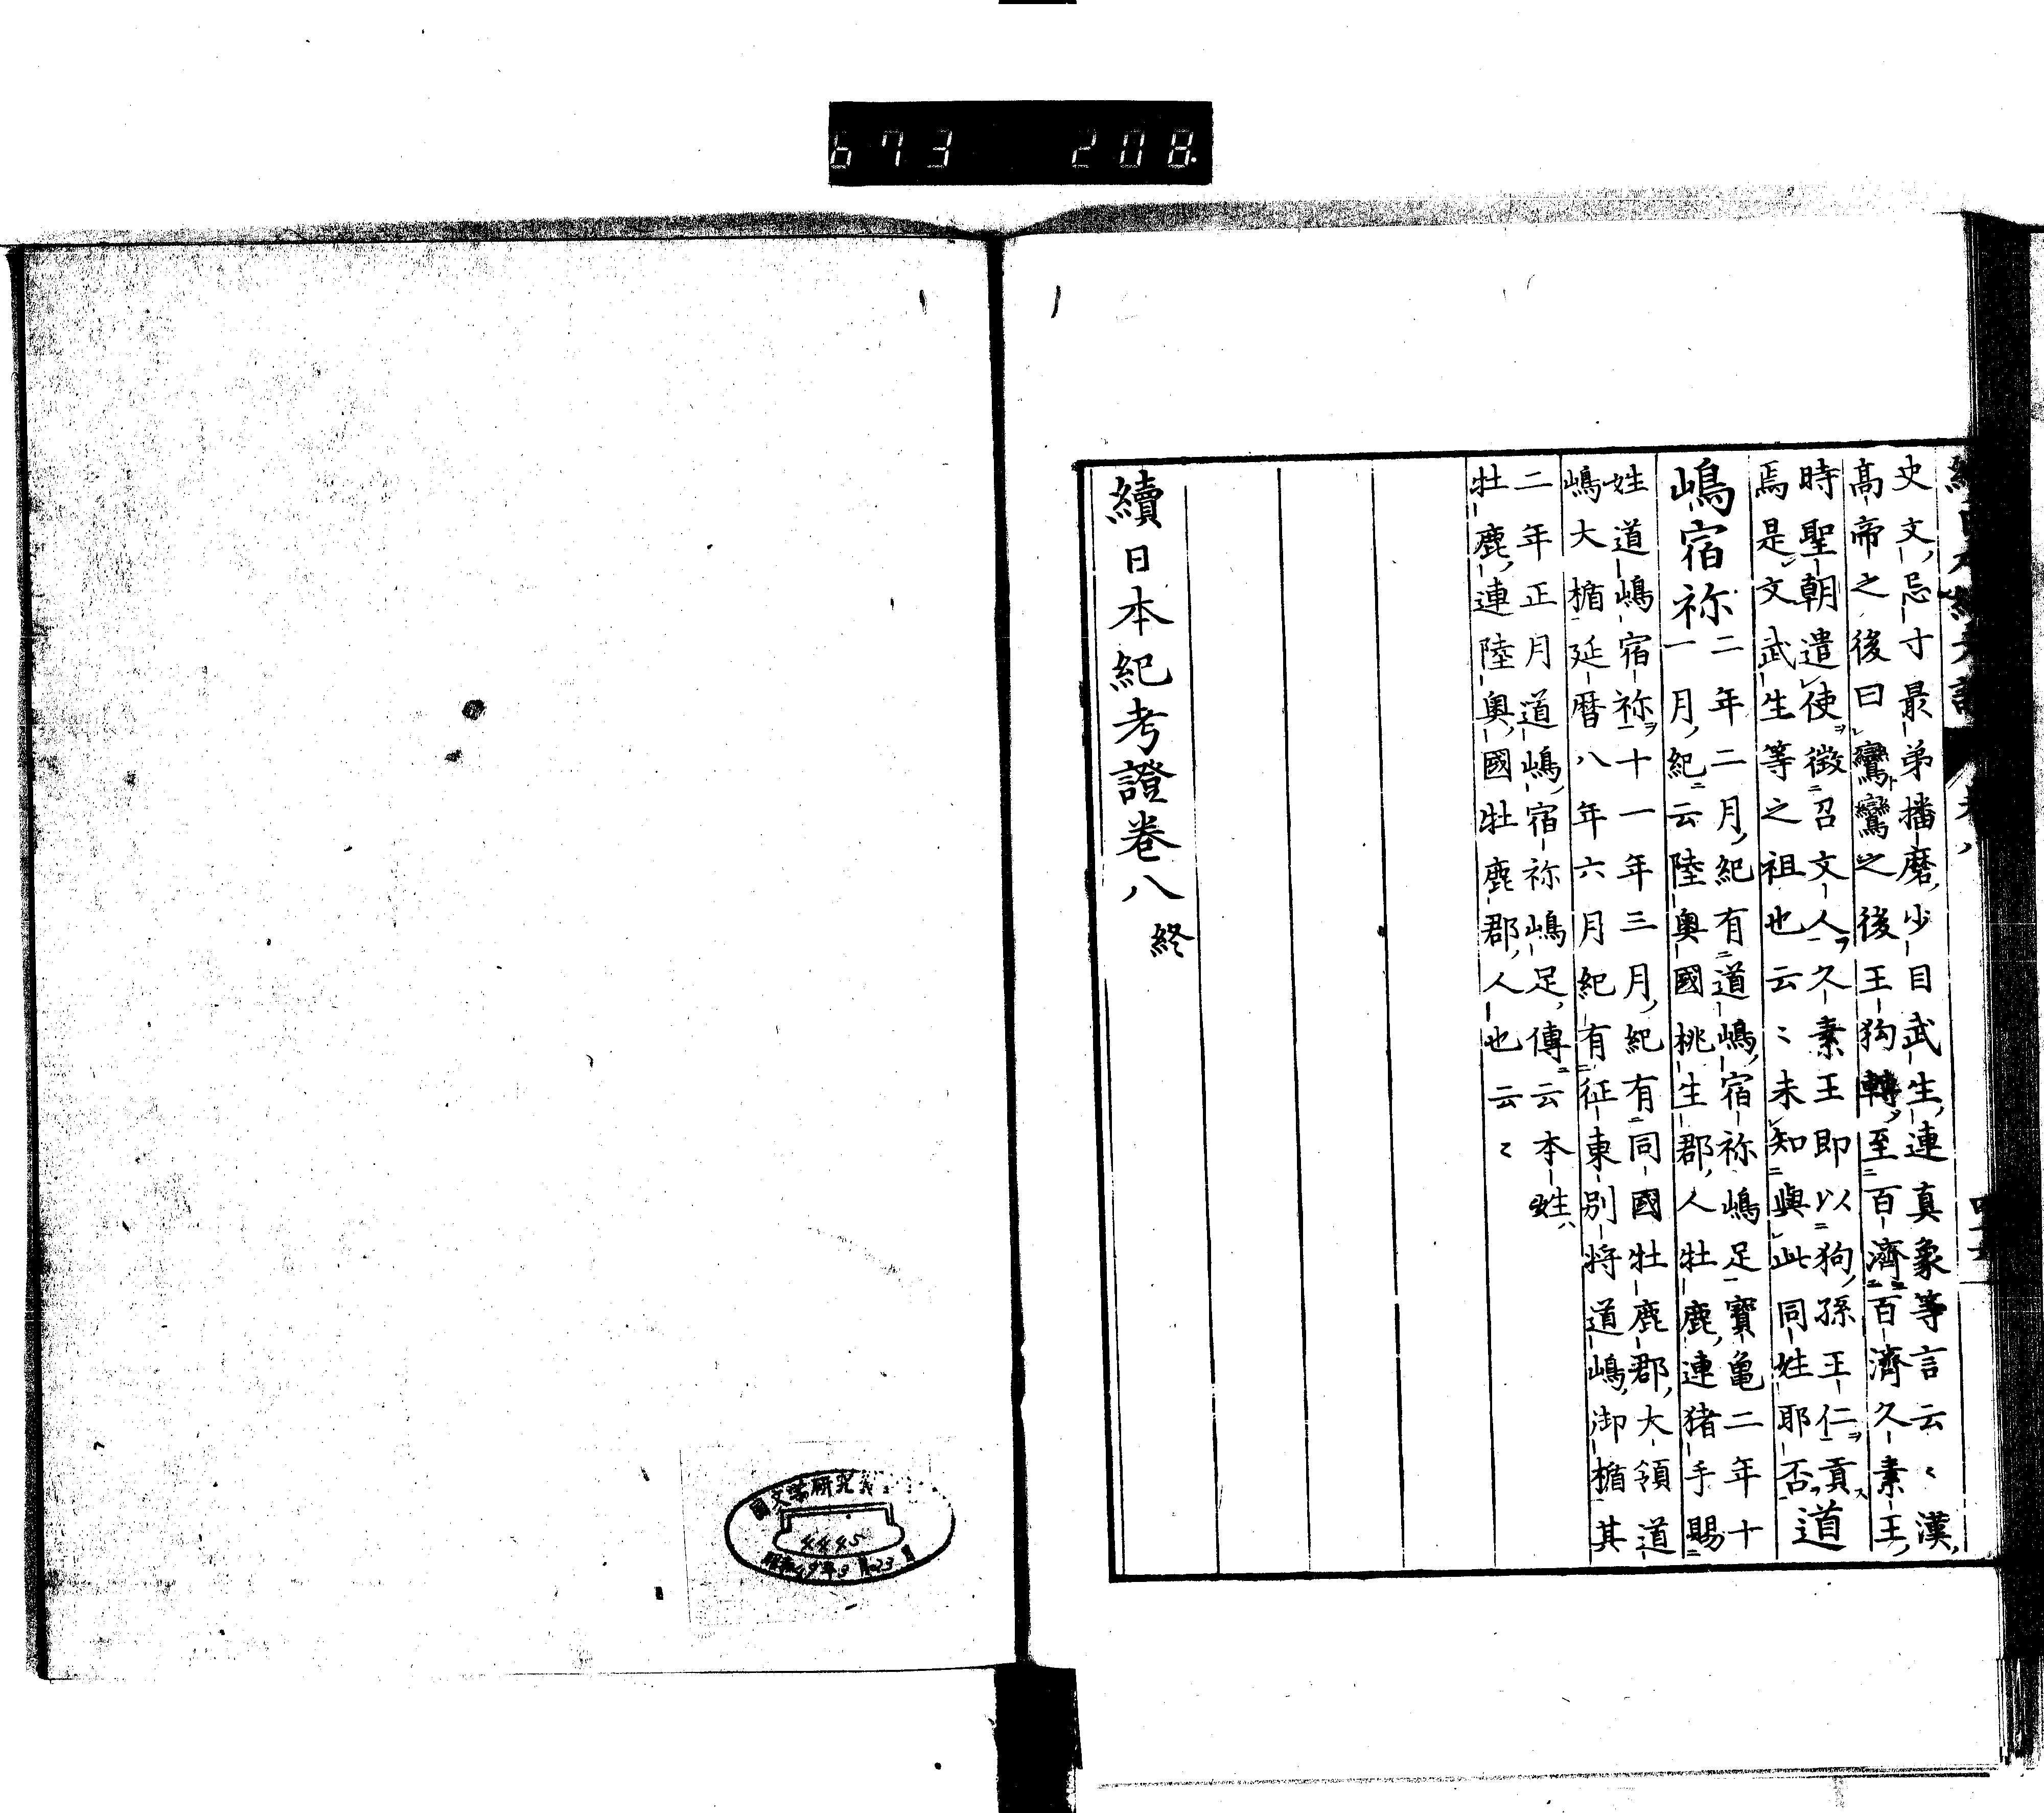 673 208
史文忌寸最弟播磨少目武生連真象等言云〻漢
高帝之後曰鸞鸞之後王狗轉至百濟百濟久素王
時聖朝遣使徴召文人久素王即以狗孫王仁貢
焉是文武生等之祖也云〻未知與此同姓耶否
道
嶋宿祢
二年二月紀有道嶋宿祢嶋足寶亀二年十
一月紀云陸奥國桃生郡人牡鹿連猪手賜
姓道嶋宿祢十一年三月紀有同國牡鹿郡大領道
嶋大楯延暦八年六月紀有征東別将道嶋御楯其
二年正月道嶋宿祢嶋足傳云本姓
牡鹿連陸奥國牡鹿郡人也云〻
續日本紀考證卷八 終
4445